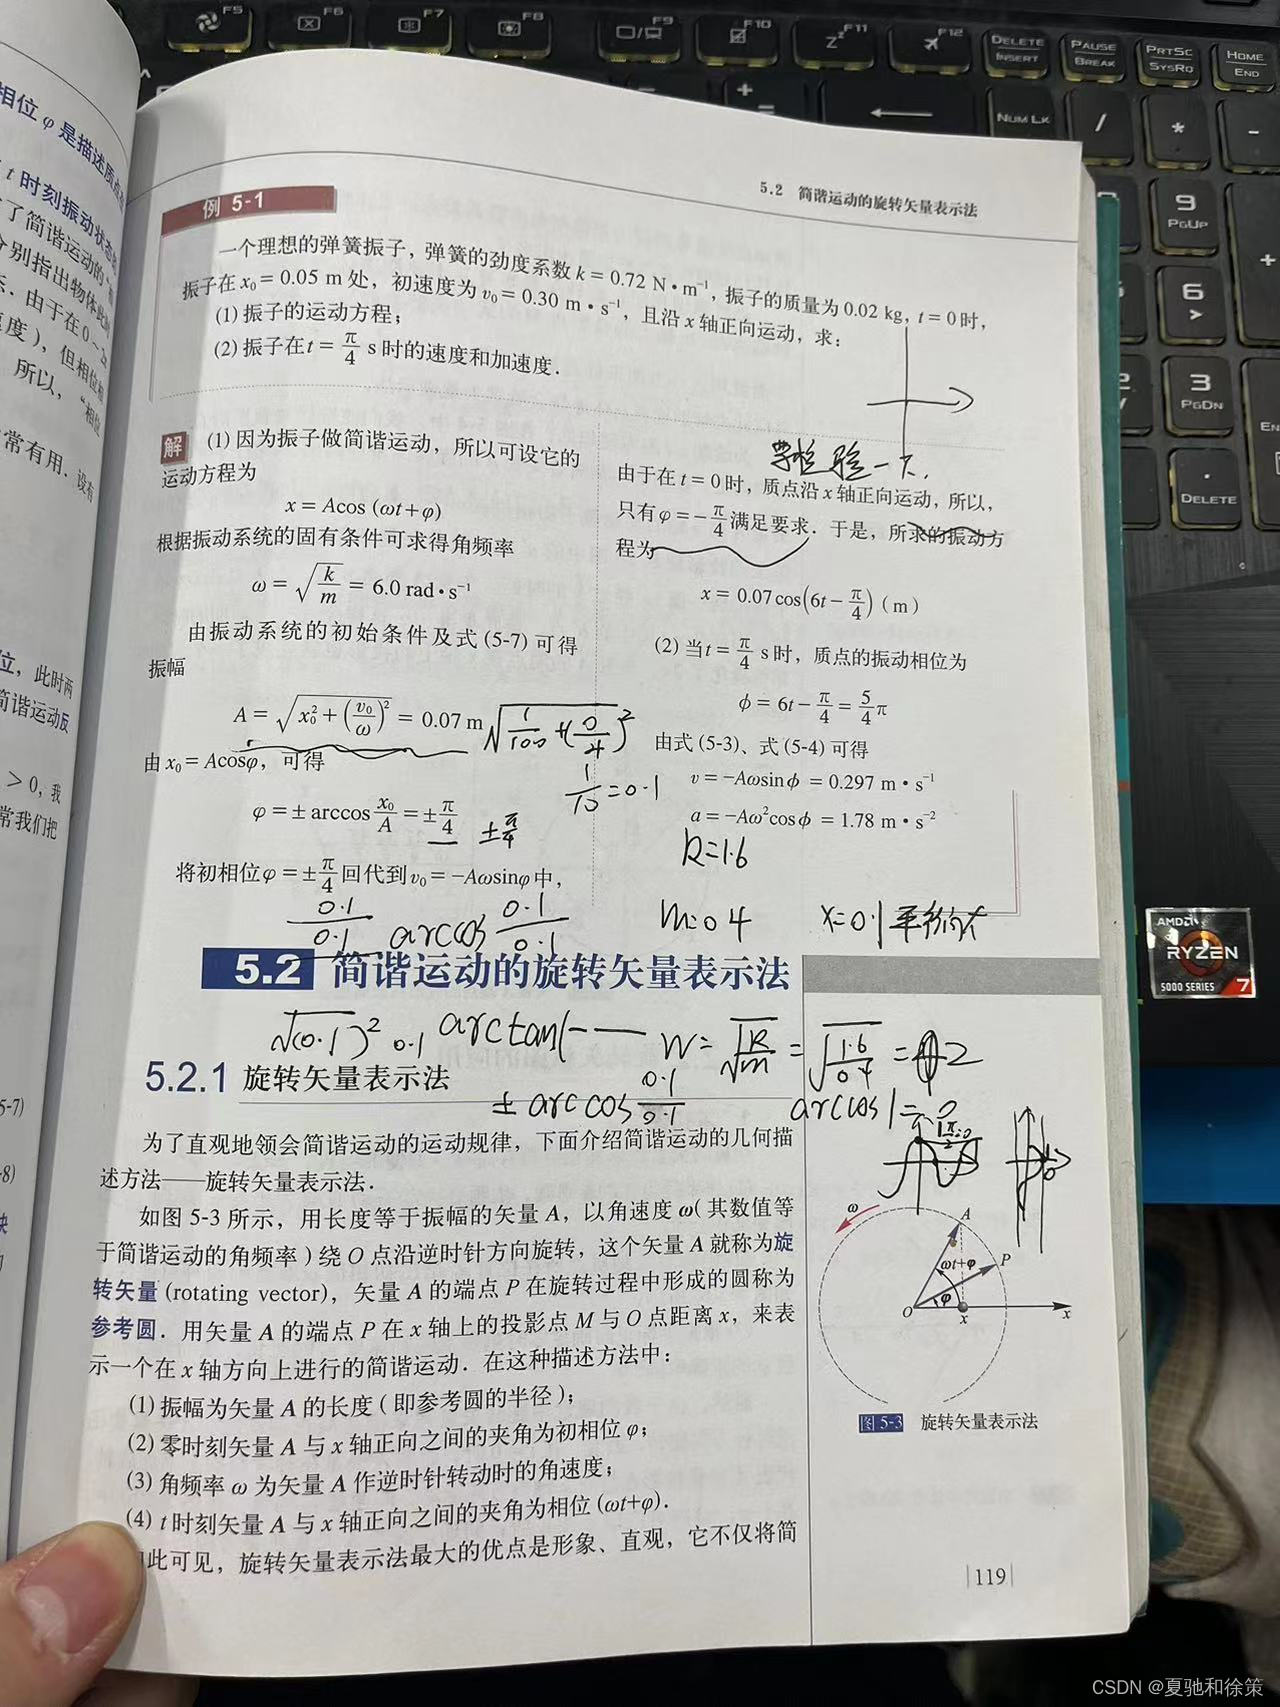 相位 φ 是描述质点
t 时刻振动状态
了简谐运动的
分别指出物体
示．由于在0~2
速度)，但相位
所以，“相位
常有用．设有
位，此时两
简谐运动反
> 0，我
常我们把
5-7)
-8)
5.2 简谐运动的旋转矢量表示法
例 5-1
一个理想的弹簧振子，弹簧的劲度系数 k = 0.72 N·m⁻¹，振子的质量为0.02 kg，t = 0时，
振子在 x₀ = 0.05 m 处，初速度为 v₀ = 0.30 m·s⁻¹，且沿 x 轴正向运动，求：
(1) 振子的运动方程；
(2) 振子在 t = π/4 s 时的速度和加速度．
解 (1) 因为振子做简谐运动，所以可设它的
运动方程为
x = Acos (ωt+φ)
根据振动系统的固有条件可求得角频率
ω = √(k/m) = 6.0 rad·s⁻¹
由振动系统的初始条件及式 (5-7) 可得
振幅
A = √(x₀² + (v₀/ω)²) = 0.07 m
√(1/100 + (0/4)²
由 x₀ = Acosφ，可得
1/10 = 0.1
φ = ± arccos x₀/A = ± π/4
± π/4
将初相位φ = ± π/4 回代到 v₀ = −Aωsinφ 中，
检验一下.
由于在 t = 0 时，质点沿 x 轴正向运动，所以，
只有 φ = − π/4 满足要求．于是，所求的振动方
程为
x = 0.07cos(6t − π/4) (m)
(2) 当 t = π/4 s 时，质点的振动相位为
ϕ = 6t − π/4 = 5/4 π
由式 (5-3)、式 (5-4) 可得
v = −Aωsinϕ = 0.297 m·s⁻¹
a = −Aω²cosϕ = 1.78 m·s⁻²
k=1.6
0.1/0.1 arccos 0.1/0.1
m=0.4
x=0.1
5.2 简谐运动的旋转矢量表示法
√(0.1)² 0.1 arctan(——
W = √(k/m) = √(1.6/0.4) = 2
5.2.1 旋转矢量表示法
± arccos 0.1/0.1
arccos1=0
为了直观地领会简谐运动的运动规律，下面介绍简谐运动的几何描
述方法——旋转矢量表示法．
如图 5-3 所示，用长度等于振幅的矢量 A，以角速度 ω( 其数值等
于简谐运动的角频率 ) 绕 O 点沿逆时针方向旋转，这个矢量 A 就称为旋
转矢量 (rotating vector)，矢量 A 的端点 P 在旋转过程中形成的圆称为
参考圆．用矢量 A 的端点 P 在 x 轴上的投影点 M 与 O 点距离 x，来表
示一个在 x 轴方向上进行的简谐运动．在这种描述方法中：
(1) 振幅为矢量 A 的长度 ( 即参考圆的半径 )；
(2) 零时刻矢量 A 与 x 轴正向之间的夹角为初相位 φ；
(3) 角频率 ω 为矢量 A 作逆时针转动时的角速度；
(4) t 时刻矢量 A 与 x 轴正向之间的夹角为相位 (ωt+φ)．
此可见，旋转矢量表示法最大的优点是形象、直观，它不仅将简
ω
A
P
ωt+φ
φ
O
x
x
图 5-3 旋转矢量表示法
119
F5
F6
F7
F8
F9
F10
F11
F12
DELETE
INSERT
PAUSE
BREAK
PRTSC
SYSRQ
HOME
END
NUM LK
/
*
-
9
PGUP
6
3
PGDN
.
DELETE
AMD
RYZEN
5000 SERIES 7
CSDN @夏驰和徐策